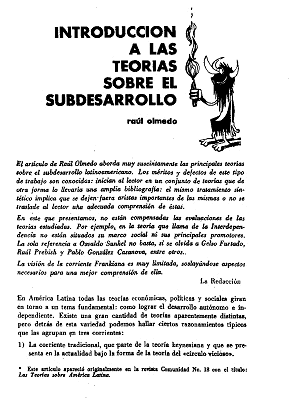 INTRODUCCION
A LAS
TEORIAS
SOBRE EL
SUBDESARROLLO
raúl olmedo
El artículo de Raúl Olmedo aborda muy suscintamente las principales teorías
sobre el subdesarrollo latinoamericano. Los méritos y defectos de este tipo
de trabajo son conocidos: inician al lector en un conjunto de teorías que de
otra forma lo llevaría una amplia bibliografía: el mismo tratamiento sin-
tético implica que se dejen fuera aristas importantes de las mismas o no se
traslade al lector una adecuada comprensión de éstas.
En este que presentamos, no están compensadas las evaluaciones de las
teorías estudiadas. Por ejemplo, en la teoría que llama de la Interdepen-
dencia no están situados su marco social ni sus principales promotores.
La sola referencia a Osvaldo Sunkel no basta, si se olvida a Celso Furtado,
Raúl Prebish y Pablo González Casanova, entre otros..
La visión de la corriente Frankiana es muy limitada, soslayándose aspectos
necesarios para una mejor comprensión de ella.
La Redacción
En América Latina todas las teorías económicas, políticas y sociales giran
en torno a un tema fundamental: como lograr el desarrollo autónomo e in-
dependiente. Existe una gran cantidad de teorías aparentemente distintas,
pero detrás de esta variedad podemos hallar ciertos razonamientos típicos
que las agrupan en tres corrientes:
1) La corriente tradicional, que parte de la teoría keynesiana y que se pre-
senta en la actualidad bajo la forma de la teoría del «círculo vicioso».
* Este artículo apareció originalmente en la revista Comunidad No. 18 con el título:
Las Teorías sobre América Latina.